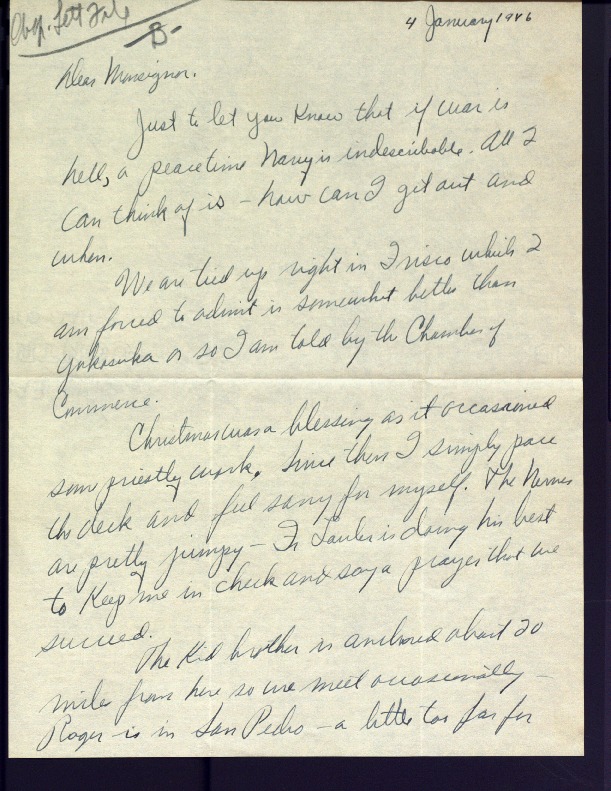 4 January 1946
Dear Monsignor.
Just to let you know that if war is
hell, a peacetime Navy is indescribable. All I
can think of is – how can I get out and
when.
We are tied up right in Frisco which I
am forced to admit is somewhat better than
Yokosuka or so I am told by the Chamber of
Commerce.
Christmas was a blessing as it occasioned
some priestly work. Since then I simply pace
the deck and feel sorry for myself. The nerves
are pretty jumpy – Fr is doing his best
to keep me in check and say a prayer that we
succeed.
The kid brother is anchored about 20
miles from here so we meet occasionally –
Roger is in San Pedro – a little too far for